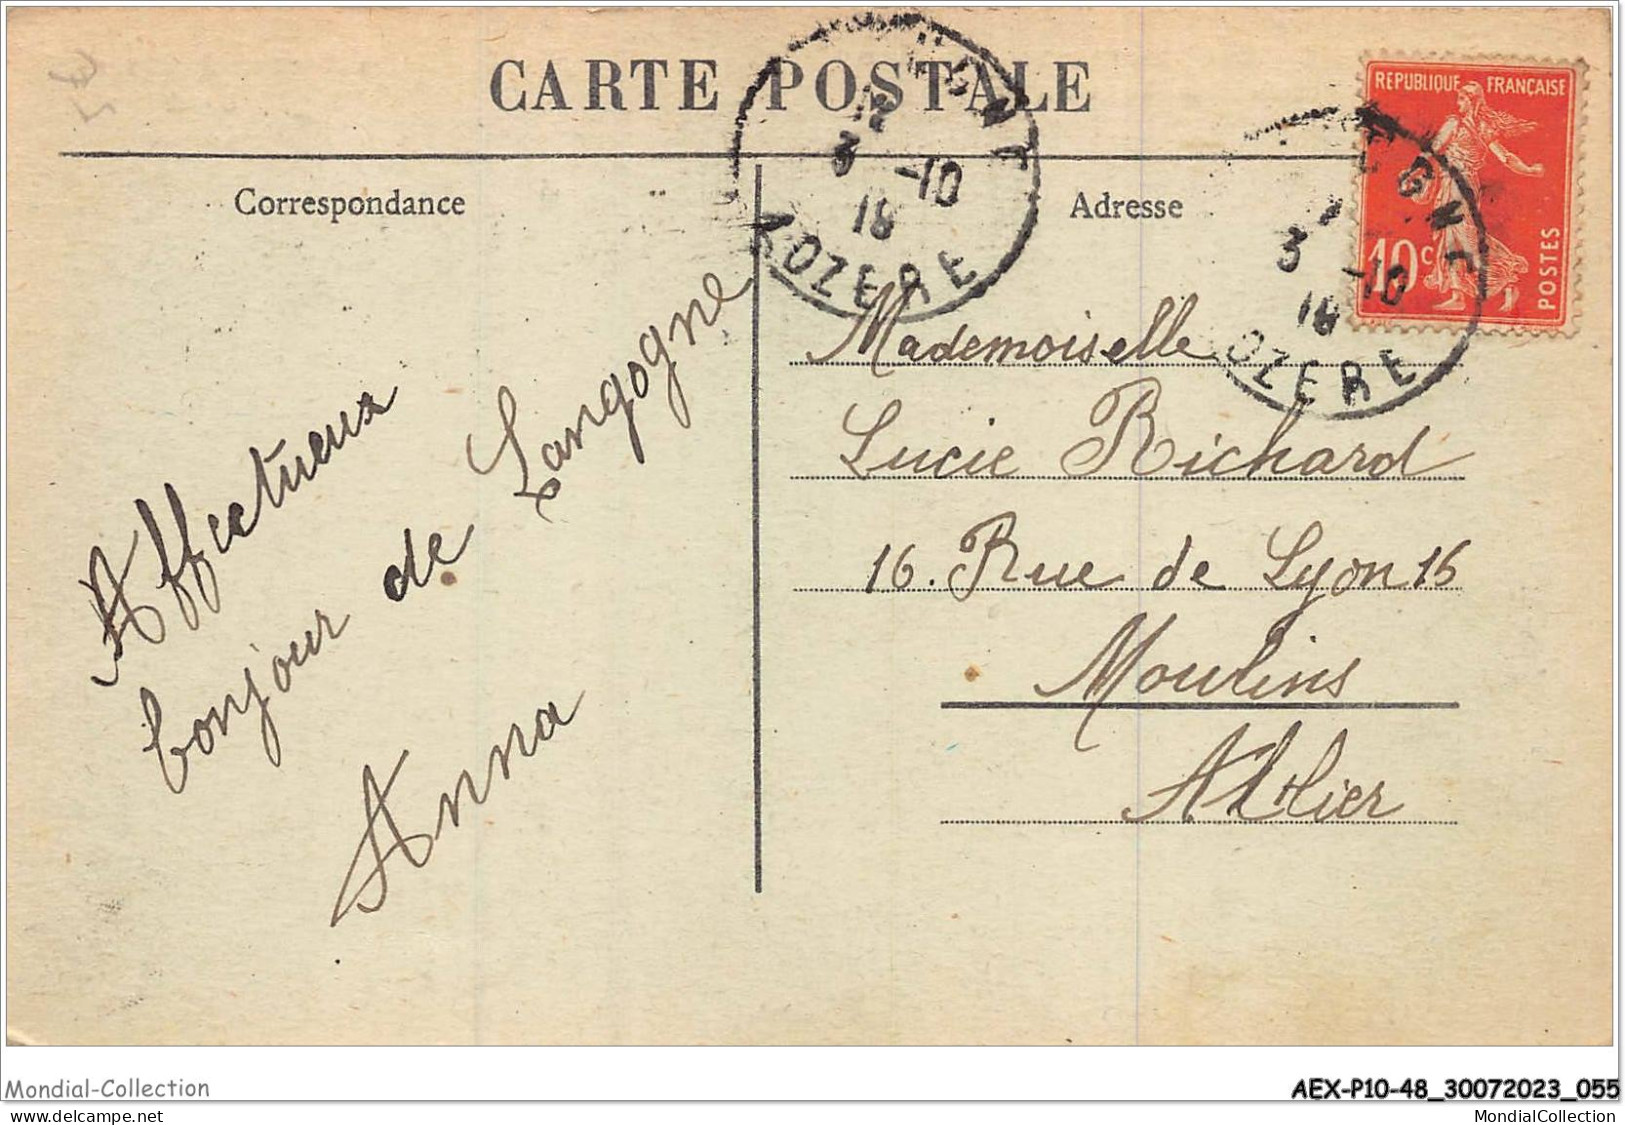 CARTE POSTALE
Correspondance
Adresse
REPUBLIQUE FRANÇAISE
10c
POSTES
12
3 -10
18
LOZERE
3 -10
18
OZERE
Affectueux
bonjour de Langogne
Anna
Mademoiselle
Lucie Richard
16. Rue de Lyon 16
Moulins
Allier
Mondial-Collection
AEX-P10-48_30072023_055
www.delcampe.net
MondialCollection